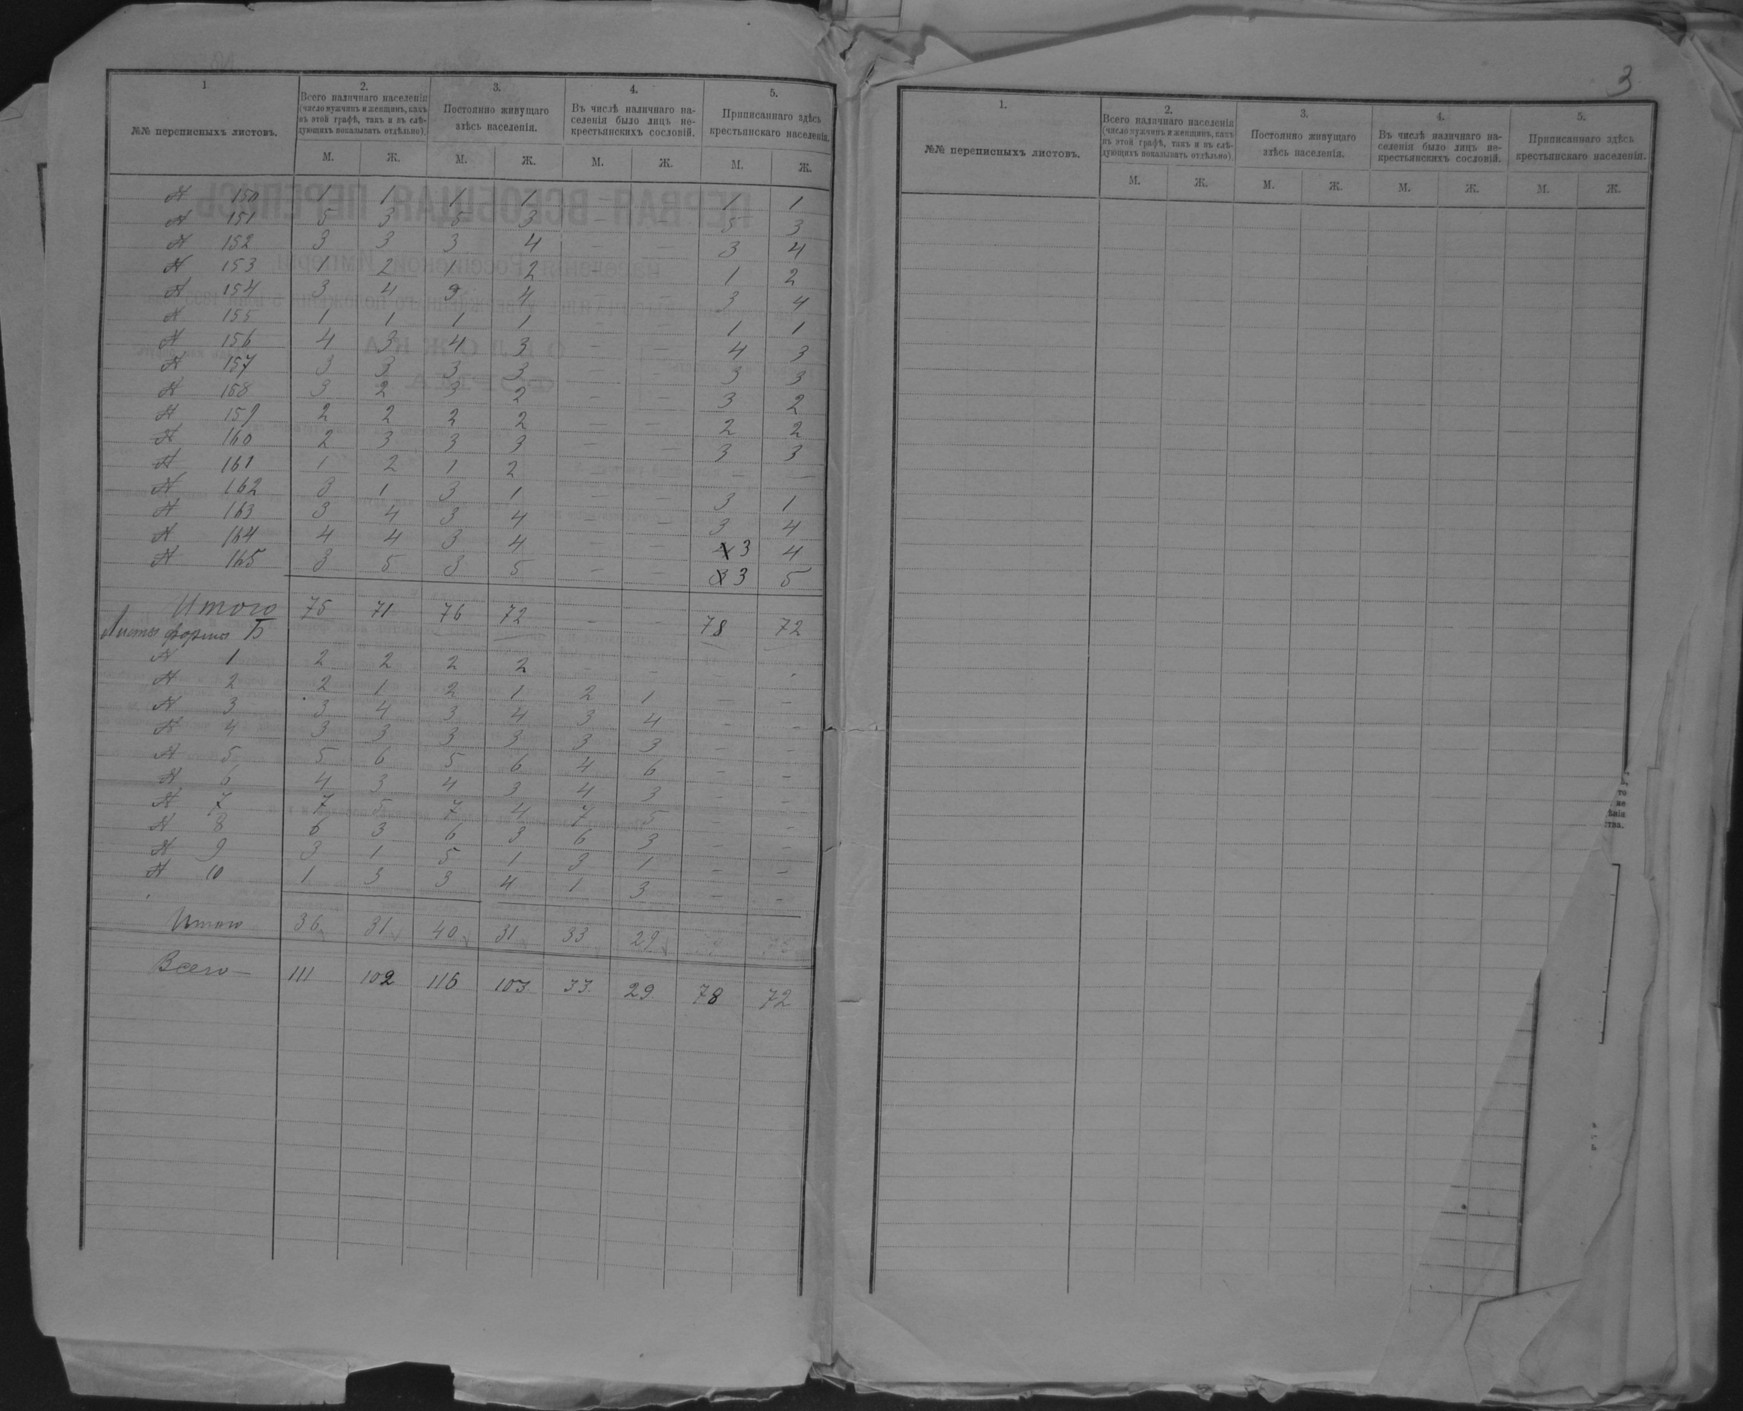 1.
№№ переписныхъ листовъ.
2.
Всего наличнаго населенія
(число мужчинъ и женщинъ, какъ
въ этой графѣ, такъ и въ слѣ-
дующихъ показывать отдѣльно).
3.
Постоянно живущаго
здѣсь населенія.
4.
Въ числѣ наличнаго на-
селенія было лицъ не-
крестьянскихъ сословій.
5.
Приписаннаго здѣсь
крестьянскаго населенія.
М. Ж. М. Ж. М. Ж. М. Ж.
№ 150 1 1 1 1 - - 1 1
№ 151 5 3 5 3 - - 5 3
№ 152 3 3 3 4 - - 3 4
№ 153 1 2 1 2 - - 1 2
№ 154 3 4 3 4 - - 3 4
№ 155 1 1 1 1 - - 1 1
№ 156 4 3 4 3 - - 4 3
№ 157 3 3 3 3 - - 3 3
№ 158 3 2 3 2 - - 3 2
№ 159 2 2 2 2 - - 2 2
№ 160 2 3 3 3 - - 3 3
№ 161 1 2 1 2 - - - -
№ 162 3 1 3 1 - - 3 1
№ 163 3 4 3 4 - - 3 4
№ 164 4 4 3 4 - - 3 4
№ 165 8 5 8 5 - - 3 5
Итого 75 71 76 72 - - 78 72
Листы форма Б
№ 1 2 2 2 2 - - - -
№ 2 2 1 2 1 2 1 - -
№ 3 3 4 3 4 3 4 - -
№ 4 3 3 3 3 3 3 - -
№ 5 5 6 5 6 4 6 - -
№ 6 4 3 4 3 4 3 - -
№ 7 7 5 7 4 7 5 - -
№ 8 6 3 6 3 6 3 - -
№ 9 3 1 5 1 3 1 - -
№ 10 1 3 3 4 1 3 - -
Итого 36 31 40 31 33 29
Всего 111 102 116 103 33 29 78 72
3
1.
№№ переписныхъ листовъ.
2.
Всего наличнаго населенія
(число мужчинъ и женщинъ, какъ
въ этой графѣ, такъ и въ слѣ-
дующихъ показывать отдѣльно).
3.
Постоянно живущаго
здѣсь населенія.
4.
Въ числѣ наличнаго на-
селенія было лицъ не-
крестьянскихъ сословій.
5.
Приписаннаго здѣсь
крестьянскаго населенія.
М. Ж. М. Ж. М. Ж. М. Ж.